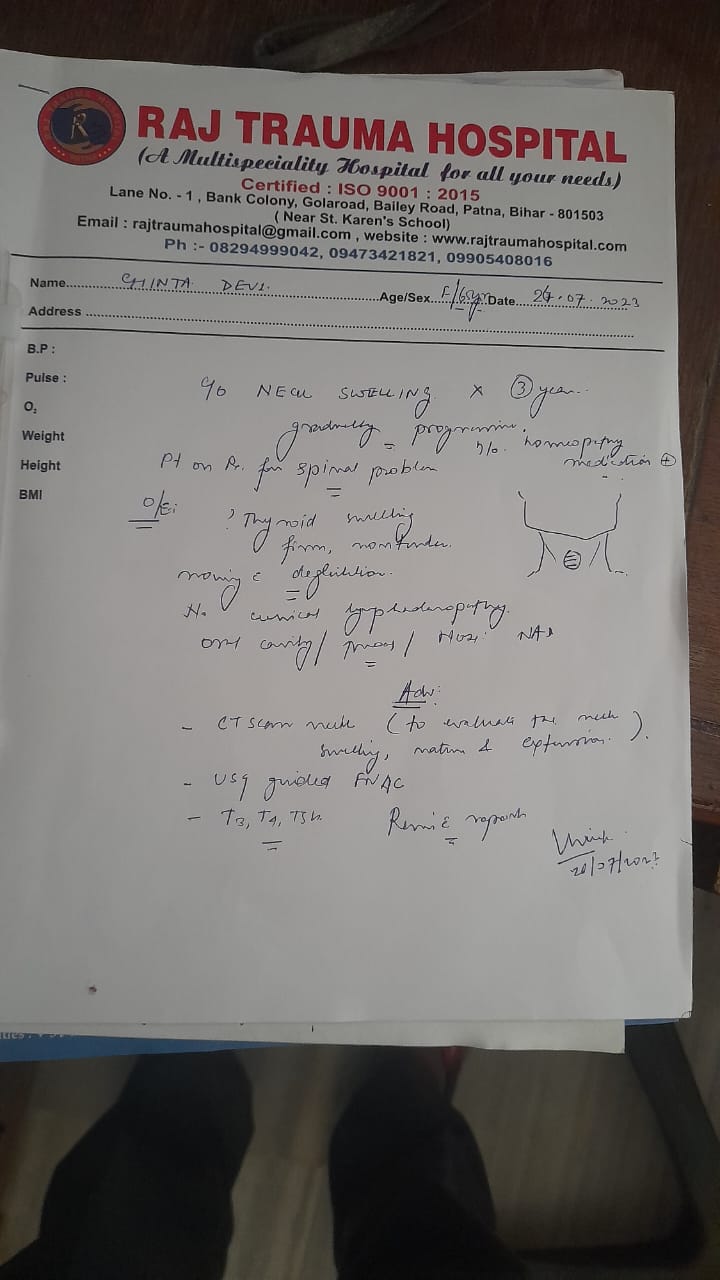 RAJ TRAUMA HOSPITAL
(A Multispeciality Hospital for all your needs)
Certified : ISO 9001 : 2015
Lane No. - 1 , Bank Colony, Golaroad, Bailey Road, Patna, Bihar - 801503
( Near St. Karen's School)
Email : rajtraumahospital@gmail.com , website : www.rajtraumahospital.com
Ph :- 08294999042, 09473421821, 09905408016
Name CHINTA DEVI Age/Sex F/ Date 07.2023
Address
B.P :
Pulse :
O2
Weight
Height
BMI
c/o NECK SWELLING x 3 year
gradually progressive.
h/o homeopathy
medication +
Pt on Rx. for spinal problem
O/E:
? Thyroid swelling
firm, nontender.
moving c deglutition.
No cervical lymphadenopathy.
oral cavity / / Nose: NAD
Adv:
- CT Scan neck (to evaluate the neck
swelling, nature & extension.).
- USG guided FNAC
- T3, T4, TSH
Review c reports
/07/2023